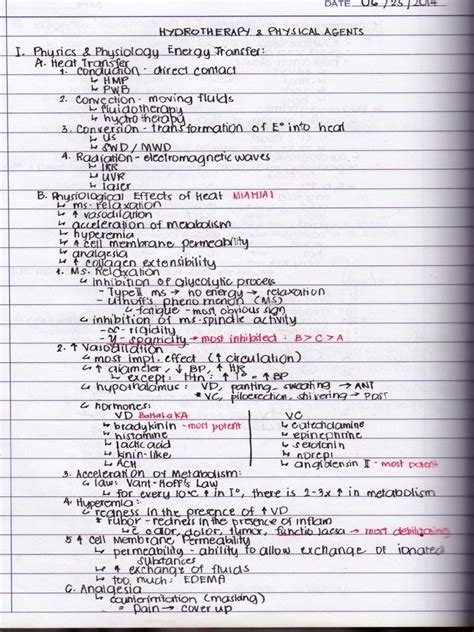 DATE 06/25/2014
HYDROTHERAPY & PHYSICAL AGENTS
I. Physics & Physiology Energy Transfer:
A. Heat Transfer
1. Conduction - direct contact
↳ HMP
↳ PWB
2. Convection - moving fluids
↳ fluidotherapy
↳ hydrotherapy
3. Conversion - transformation of E° into heat
↳ US
↳ SWD / MWD
4. Radiation - electromagnetic waves
↳ IRR
↳ UVR
↳ laser
B. Physiological Effects of Heat MIAMIAI
↳ ms. relaxation
↳ ↑ vasodilation
↳ acceleration of metabolism
↳ hyperemia
↳ ↑ cell membrane permeability
↳ analgesia
↳ ↑ collagen extensibility
1. Ms. Relaxation
↳ inhibition of glycolytic process
- Type II ms → no energy → relaxation
- Uthoff's phenomenon (MS)
↳ fatigue - most obvious sign
↳ inhibition of ms. spindle activity
- α - rigidity
- γ - spasticity → most inhibited : B > C > A
2. ↑ Vasodilation
↳ most impt. effect (↑ circulation)
↳ ↑ diameter, ↓ BP, ↑ HR
↳ except: HTN: ↑ T° = ↑ BP
↳ hypothalamus: VD, panting, sweating → ANT
* VC, piloerection, shivering → POST
↳ hormones:
VD BaHaLaKA VC
↳ bradykinin - most potent ↳ catecholamine
↳ histamine ↳ epinephrine
↳ lactic acid ↳ serotonin
↳ kinin-like ↳ norepi
↳ ACH ↳ angiotensin II - most potent
3. Acceleration of Metabolism:
↳ law: Vant-Hoff's Law
↳ for every 10°C ↑ in T°, there is 2-3x ↑ in metabolism
4. Hyperemia:
↳ redness in the presence of ↑ VD
* Rubor - redness in the presence of inflam
↳ c̄ calor, dolor, tumor, functio laesa → most debilitating
5. ↑ Cell Membrane Permeability
↳ permeability - ability to allow exchange of ionated
substances
↳ ↑ exchange of fluids
↳ too much: EDEMA
6. Analgesia
↳ counterirritation (masking)
= Pain → cover up